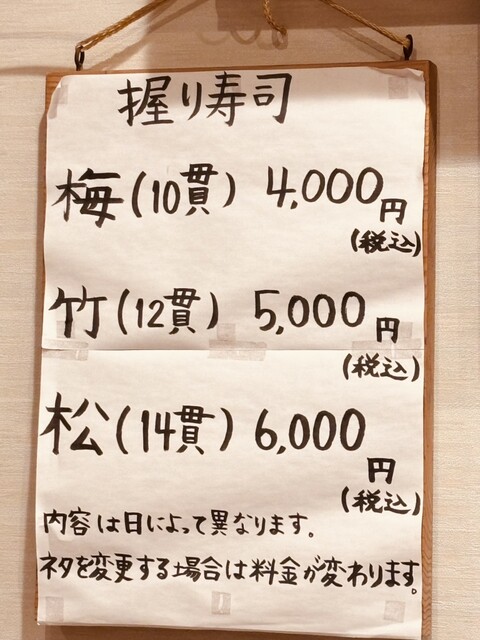 握り寿司
梅(10貫) 4,000円
(税込)
竹(12貫) 5,000円
(税込)
松(14貫) 6,000
円
(税込)
内容は日によって異なります。
ネタを変更する場合は料金が変わります。